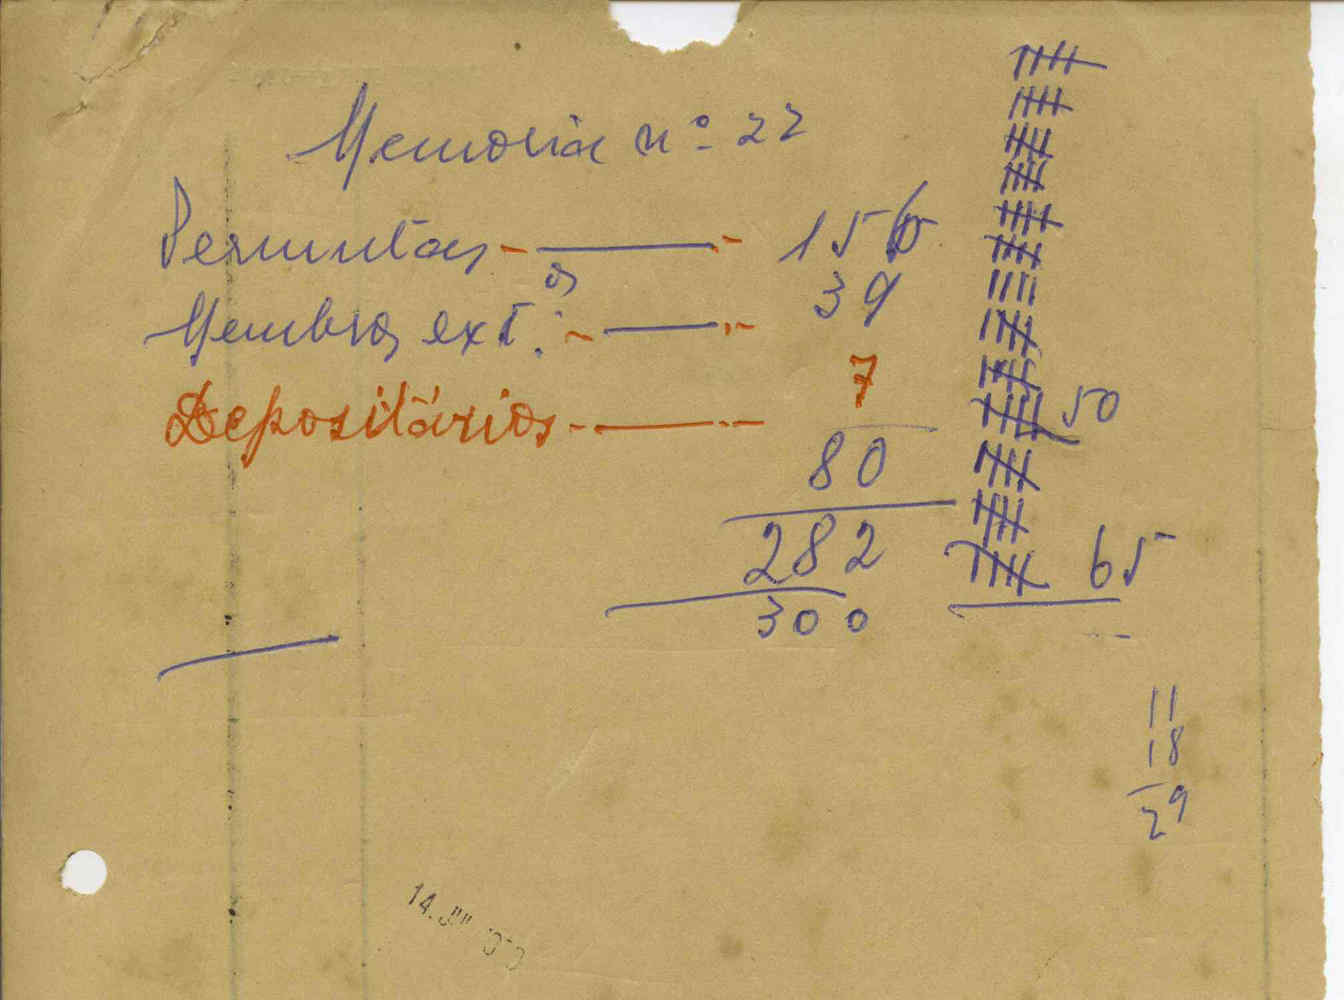 Memoria nº 22
Permutas - ——— - 156
Membros ext.os - —— - 39
Depositários - ——— - 7
80
282
300
50
65
11
18
29
14. JUL